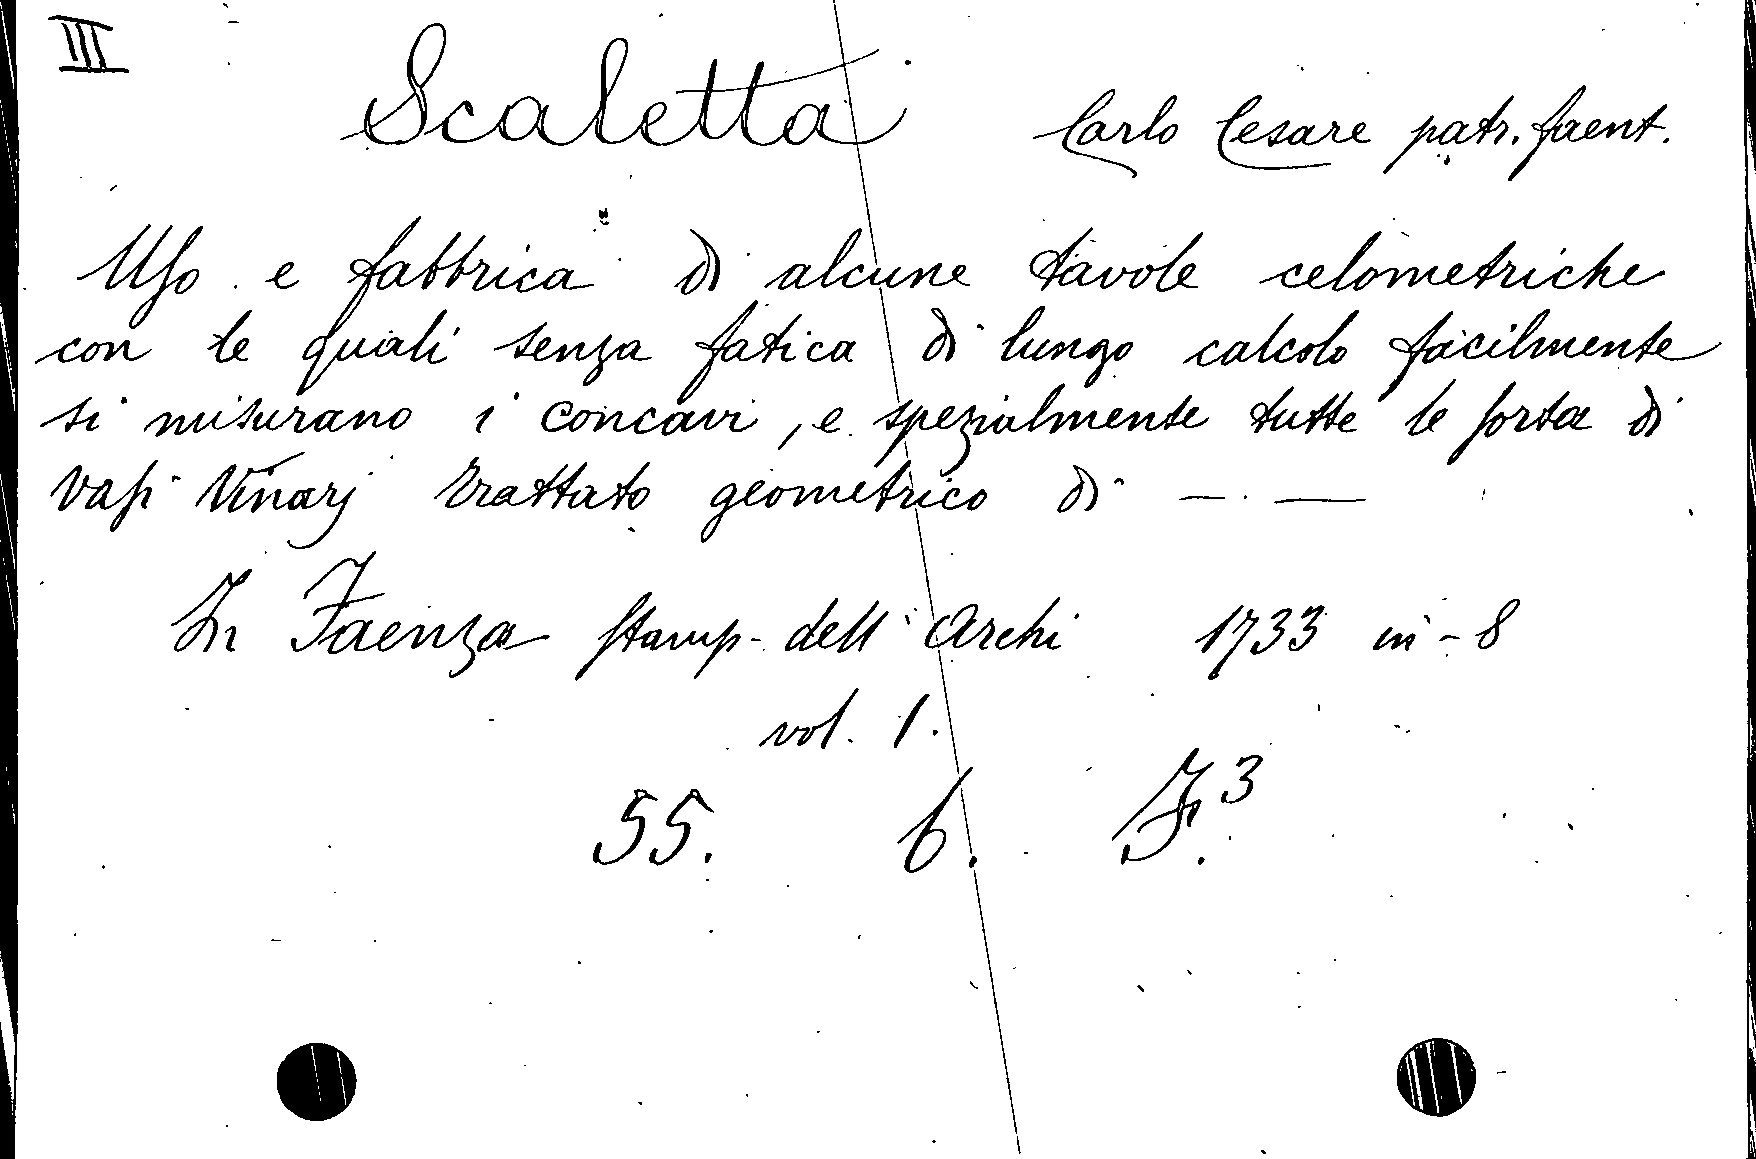 III
Scaletta Carlo Cesare patr. faent.
Uſo e fabbrica di alcune tavole celometriche
con le quali senza fatica di lungo calcolo facilmente
si misurano i concavi, e spezialmente tutte le ſorta di
vaſi Vinarj trattato geometrico di — —
In Faenza ſtamp. dell'Archi 1733 in-8
vol. 1.
55. 6. F.3